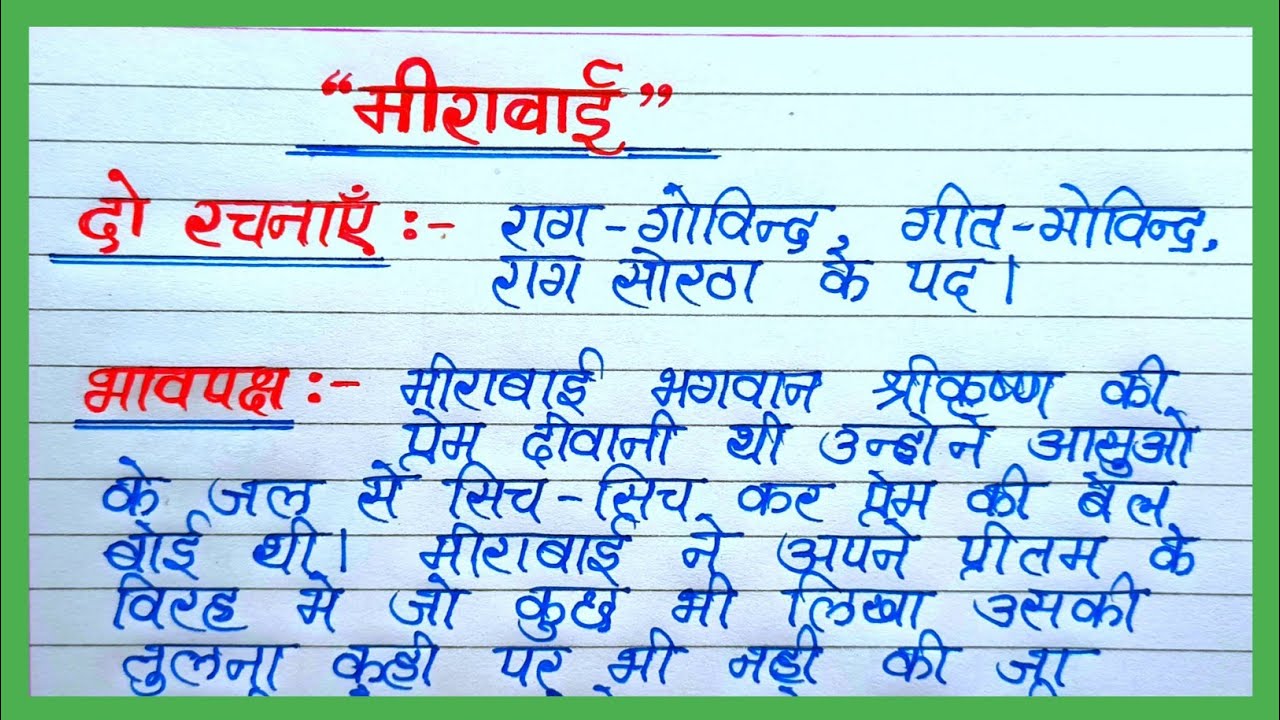 “मीराबाई”
दो रचनाएँ :- राग-गोविन्द, गीत-गोविन्द,
राग सोरठा के पद।
भावपक्ष :- मीराबाई भगवान श्रीकृष्ण की
प्रेम दीवानी थी उन्होने आसुओ
के जल से सिच-सिच कर प्रेम की बेल
बोई थी। मीराबाई ने अपने प्रीतम के
विरह मे जो कुछ भी लिखा उसकी
तुलना कही पर भी नही की जा